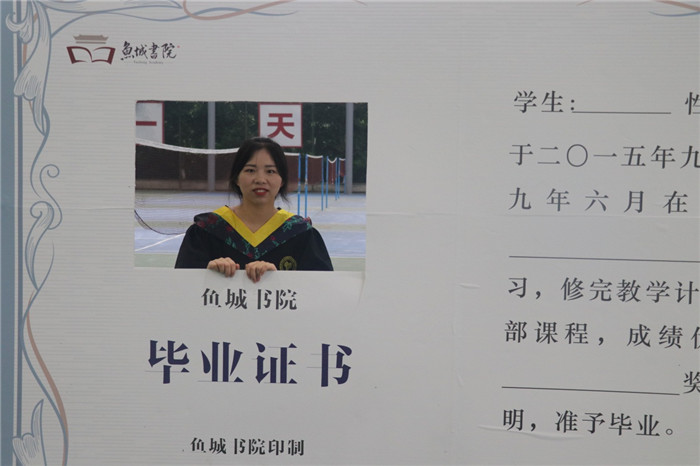 魚城書院
一 天
鱼城书院
毕业证书
鱼城书院印制
学生:________ 性
于二〇一五年九
九年六月在
习，修完教学计
部课程，成绩
奖
明，准予毕业。